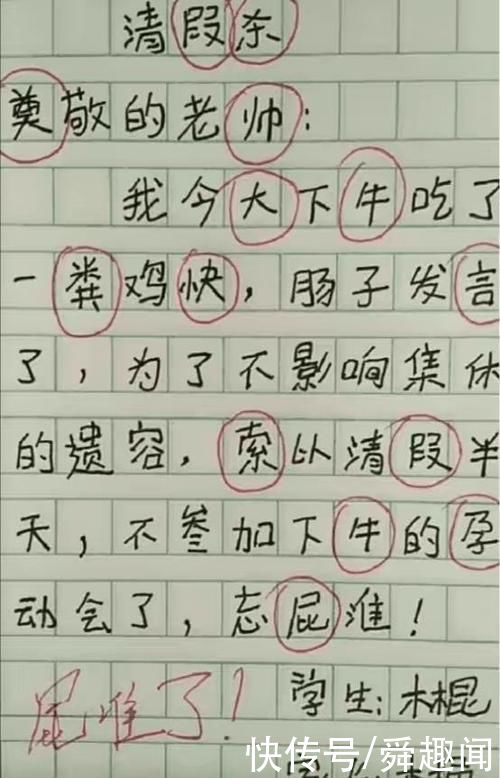 清段杀
奠敬的老帅：
我今大下牛吃了
一粪鸡快，肠子发言
了，为了不影响集休
的遗容，索以清段半
天，不叁加下牛的孕
动会了，忘屁准！
屁准了！ 学生：木棍
快传号/舜趣闻